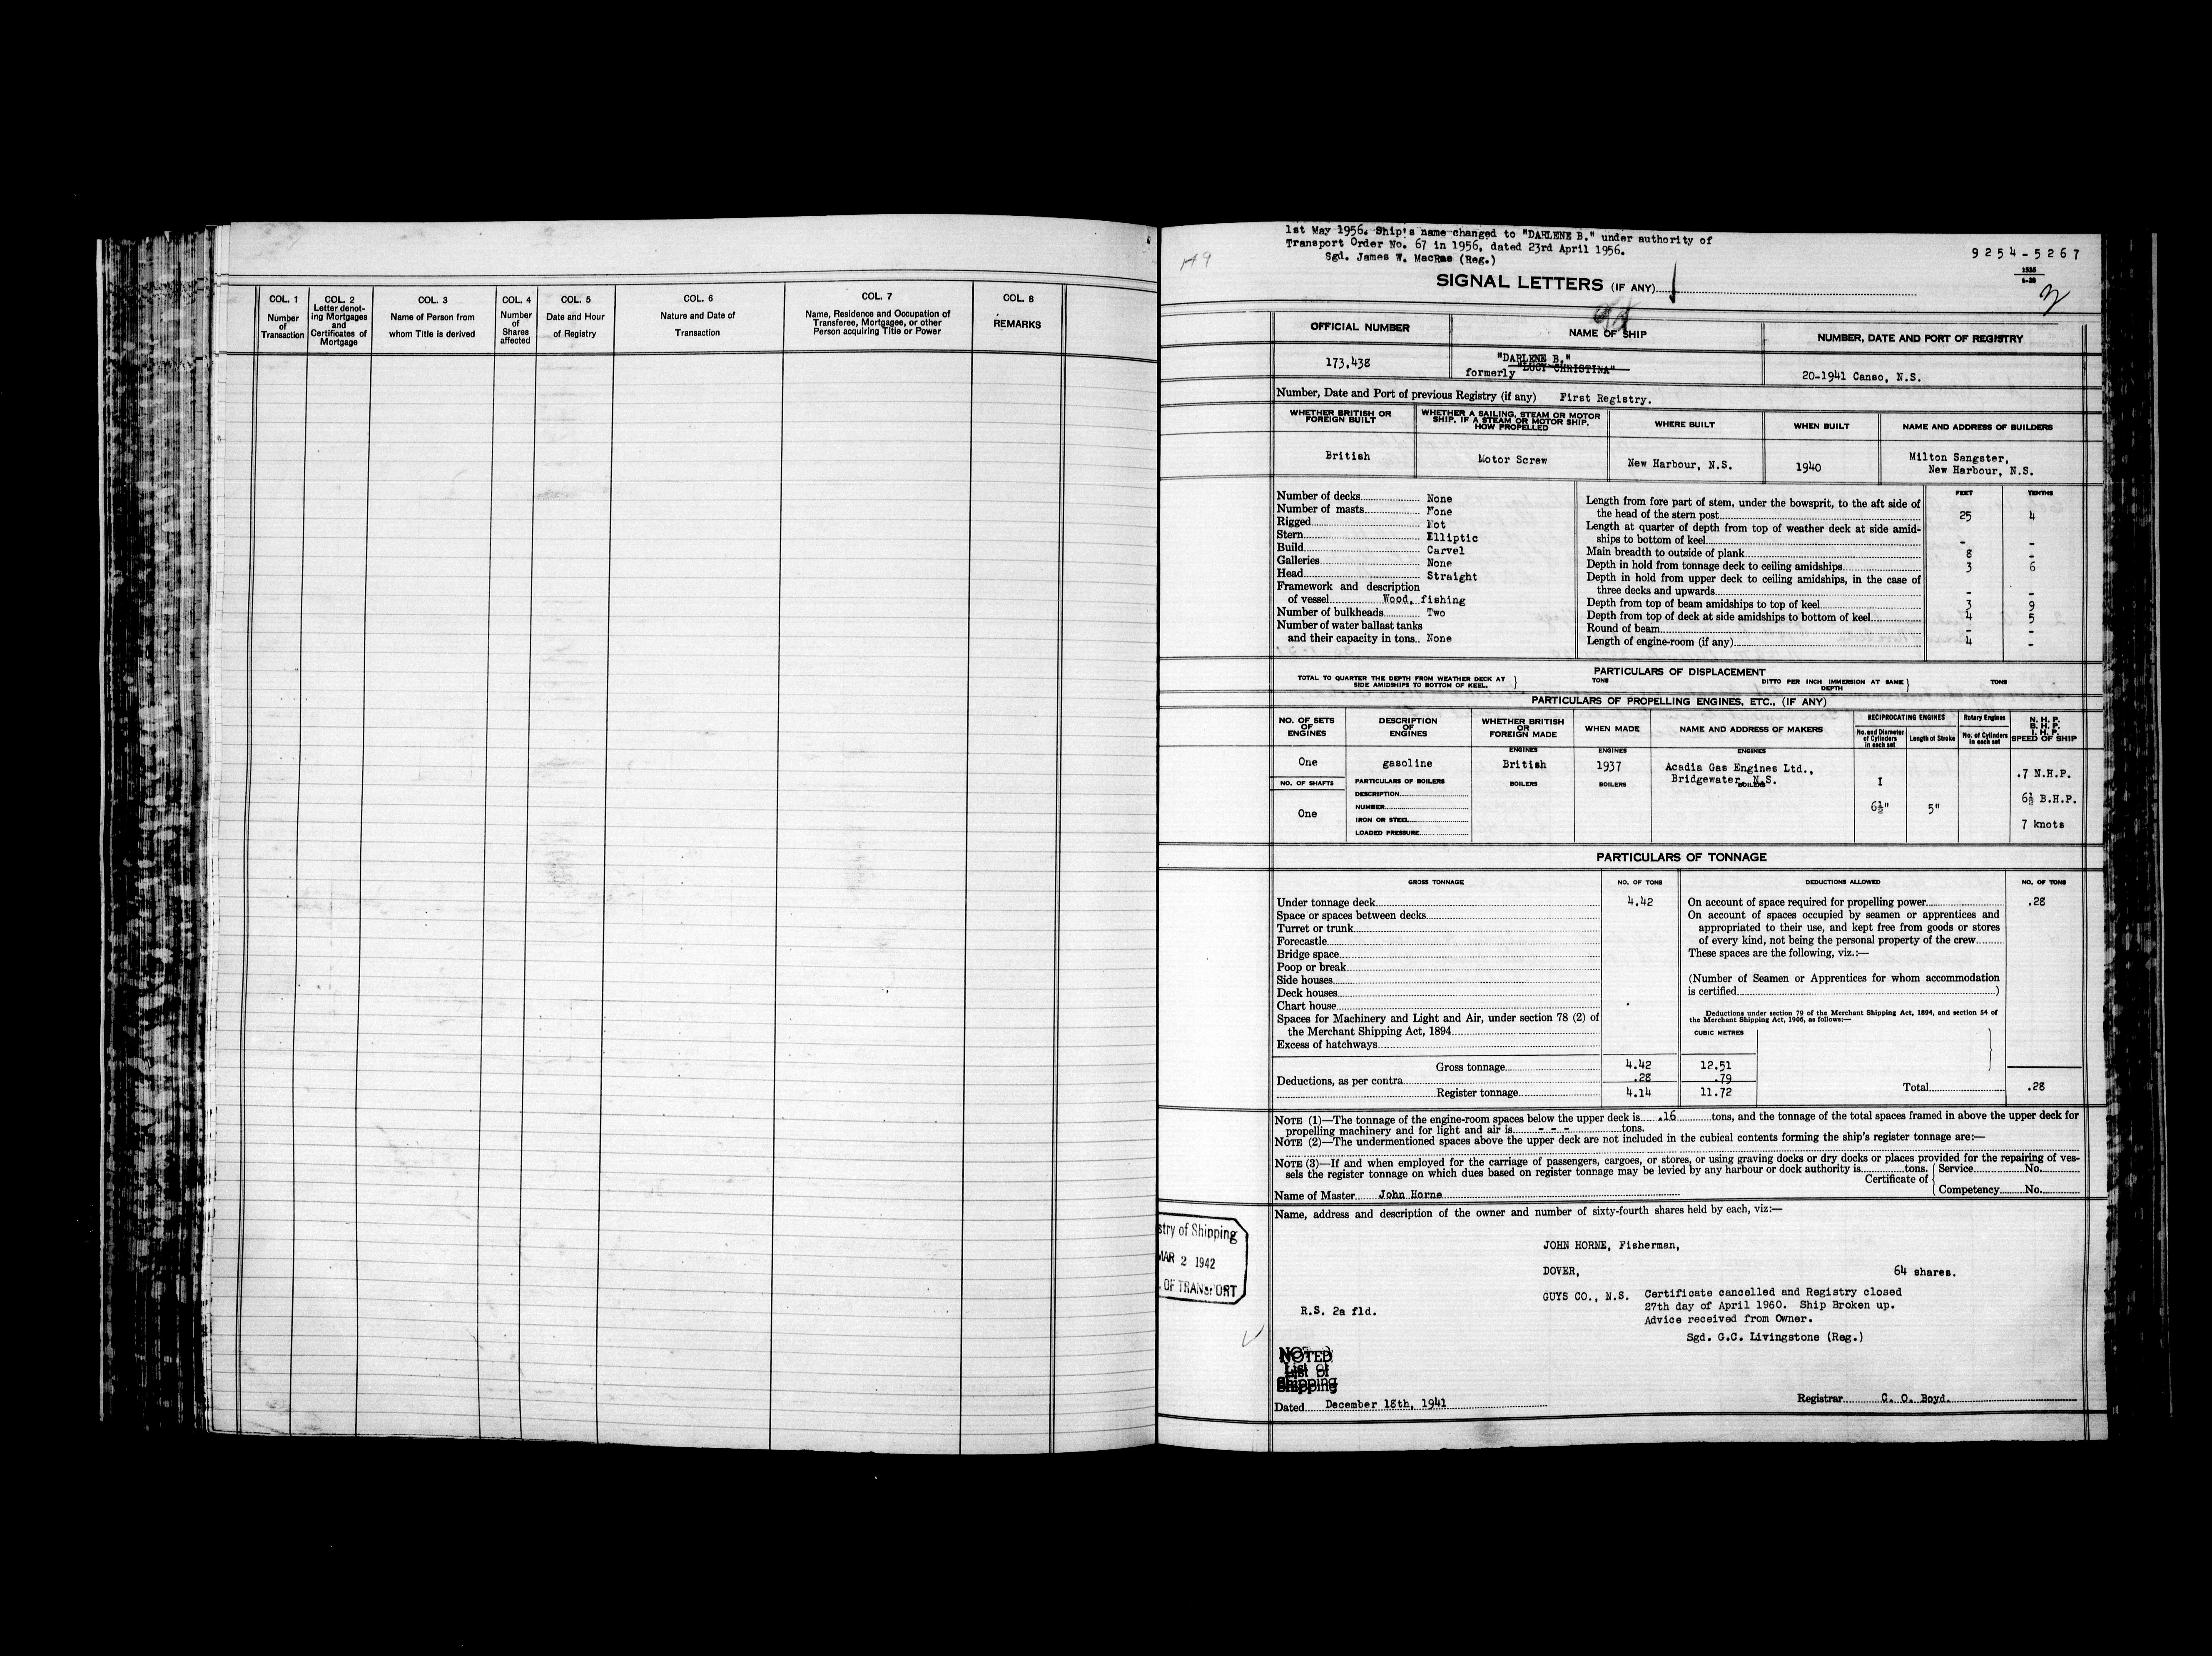 COL. 1
Number
of
Transaction
COL. 2
Letter denot-
ing Mortgages
and
Certificates of
Mortgage
COL. 3
Name of Person from
whom Title is derived
COL. 4
Number
of
Shares
affected
COL. 5
Date and Hour
of Registry
COL. 6
Nature and Date of
Transaction
COL. 7
Name, Residence and Occupation of
Transferee, Mortgagee, or other
Person acquiring Title or Power
COL. 8
REMARKS
1st May 1956. Ship's name changed to "DARLENE B." under authority of
Transport Order No. 67 in 1956, dated 23rd April 1956.
Sgd. James W. MacRae (Reg.)
9254-5267
SIGNAL LETTERS (IF ANY)
OFFICIAL NUMBER
NAME OF SHIP
NUMBER, DATE AND PORT OF REGISTRY
173,438
"DARLENE B."
formerly "LUCY CHRISTINA"
20-1941 Canso, N.S.
Number, Date and Port of previous Registry (if any) First Registry.
WHETHER BRITISH OR
FOREIGN BUILT
WHETHER A SAILING, STEAM OR MOTOR
SHIP, IF A STEAM OR MOTOR SHIP,
HOW PROPELLED
WHERE BUILT
WHEN BUILT
NAME AND ADDRESS OF BUILDERS
British
Motor Screw
New Harbour, N.S.
1940
Milton Sangster,
New Harbour, N.S.
Number of decks None
Number of masts None
Rigged Not
Stern Elliptic
Build Carvel
Galleries None
Head Straight
Framework and description
of vessel Wood, fishing
Number of bulkheads Two
Number of water ballast tanks
and their capacity in tons.. None
FEET TENTHS
Length from fore part of stem, under the bowsprit, to the aft side of
the head of the stern post 25 4
Length at quarter of depth from top of weather deck at side amid-
ships to bottom of keel - -
Main breadth to outside of plank 8 -
Depth in hold from tonnage deck to ceiling amidships 3 6
Depth in hold from upper deck to ceiling amidships, in the case of
three decks and upwards - -
Depth from top of beam amidships to top of keel 3 9
Depth from top of deck at side amidships to bottom of keel 4 5
Round of beam - -
Length of engine-room (if any) 4 -
PARTICULARS OF DISPLACEMENT
TOTAL TO QUARTER THE DEPTH FROM WEATHER DECK AT
SIDE AMIDSHIPS TO BOTTOM OF KEEL.
TONS
DITTO PER INCH IMMERSION AT SAME
DEPTH
TONS
PARTICULARS OF PROPELLING ENGINES, ETC., (IF ANY)
NO. OF SETS
OF
ENGINES
DESCRIPTION
OF
ENGINES
WHETHER BRITISH
OR
FOREIGN MADE
WHEN MADE
NAME AND ADDRESS OF MAKERS
RECIPROCATING ENGINES
No. and Diameter
of Cylinders
in each set
Length of Stroke
Rotary Engines
No. of Cylinders
in each set
N. H. P.
B. H. P.
I. H. P.
SPEED OF SHIP
ENGINES
ENGINES
ENGINES
One
gasoline
British
1937
Acadia Gas Engines Ltd.,
Bridgewater, N.S.
I
6½"
5"
.7 N.H.P.
6½ B.H.P.
7 knots
NO. OF SHAFTS
One
PARTICULARS OF BOILERS
DESCRIPTION
NUMBER
IRON OR STEEL
LOADED PRESSURE
BOILERS
BOILERS
BOILERS
PARTICULARS OF TONNAGE
GROSS TONNAGE
NO. OF TONS
DEDUCTIONS ALLOWED
NO. OF TONS
Under tonnage deck 4.42
Space or spaces between decks
Turret or trunk
Forecastle
Bridge space
Poop or break
Side houses
Deck houses
Chart house
Spaces for Machinery and Light and Air, under section 78 (2) of
the Merchant Shipping Act, 1894
Excess of hatchways
Gross tonnage 4.42 12.51
Deductions, as per contra .28 .79
Register tonnage 4.14 11.72
On account of space required for propelling power .28
On account of spaces occupied by seamen or apprentices and
appropriated to their use, and kept free from goods or stores
of every kind, not being the personal property of the crew
These spaces are the following, viz.:—
(Number of Seamen or Apprentices for whom accommodation
is certified )
Deductions under section 79 of the Merchant Shipping Act, 1894, and section 54 of
the Merchant Shipping Act, 1906, as follows:—
CUBIC METRES
Total .28
NOTE (1)—The tonnage of the engine-room spaces below the upper deck is .16 tons, and the tonnage of the total spaces framed in above the upper deck for
propelling machinery and for light and air is - - - tons.
NOTE (2)—The undermentioned spaces above the upper deck are not included in the cubical contents forming the ship's register tonnage are:—
NOTE (3)—If and when employed for the carriage of passengers, cargoes, or stores, or using graving docks or dry docks or places provided for the repairing of ves-
sels the register tonnage on which dues based on register tonnage may be levied by any harbour or dock authority is tons.
Certificate of
Service No.
Competency No.
Name of Master John Horne
Name, address and description of the owner and number of sixty-fourth shares held by each, viz:—
stry of Shipping
MAR 2 1942
. OF TRANSPORT
JOHN HORNE, Fisherman,
DOVER, 64 shares.
GUYS CO., N.S.
Certificate cancelled and Registry closed
27th day of April 1960. Ship Broken up.
Advice received from Owner.
Sgd. G.C. Livingstone (Reg.)
R.S. 2a fld.
NOTED
List of
Shipping
Dated December 18th, 1941
Registrar C. O. Boyd.